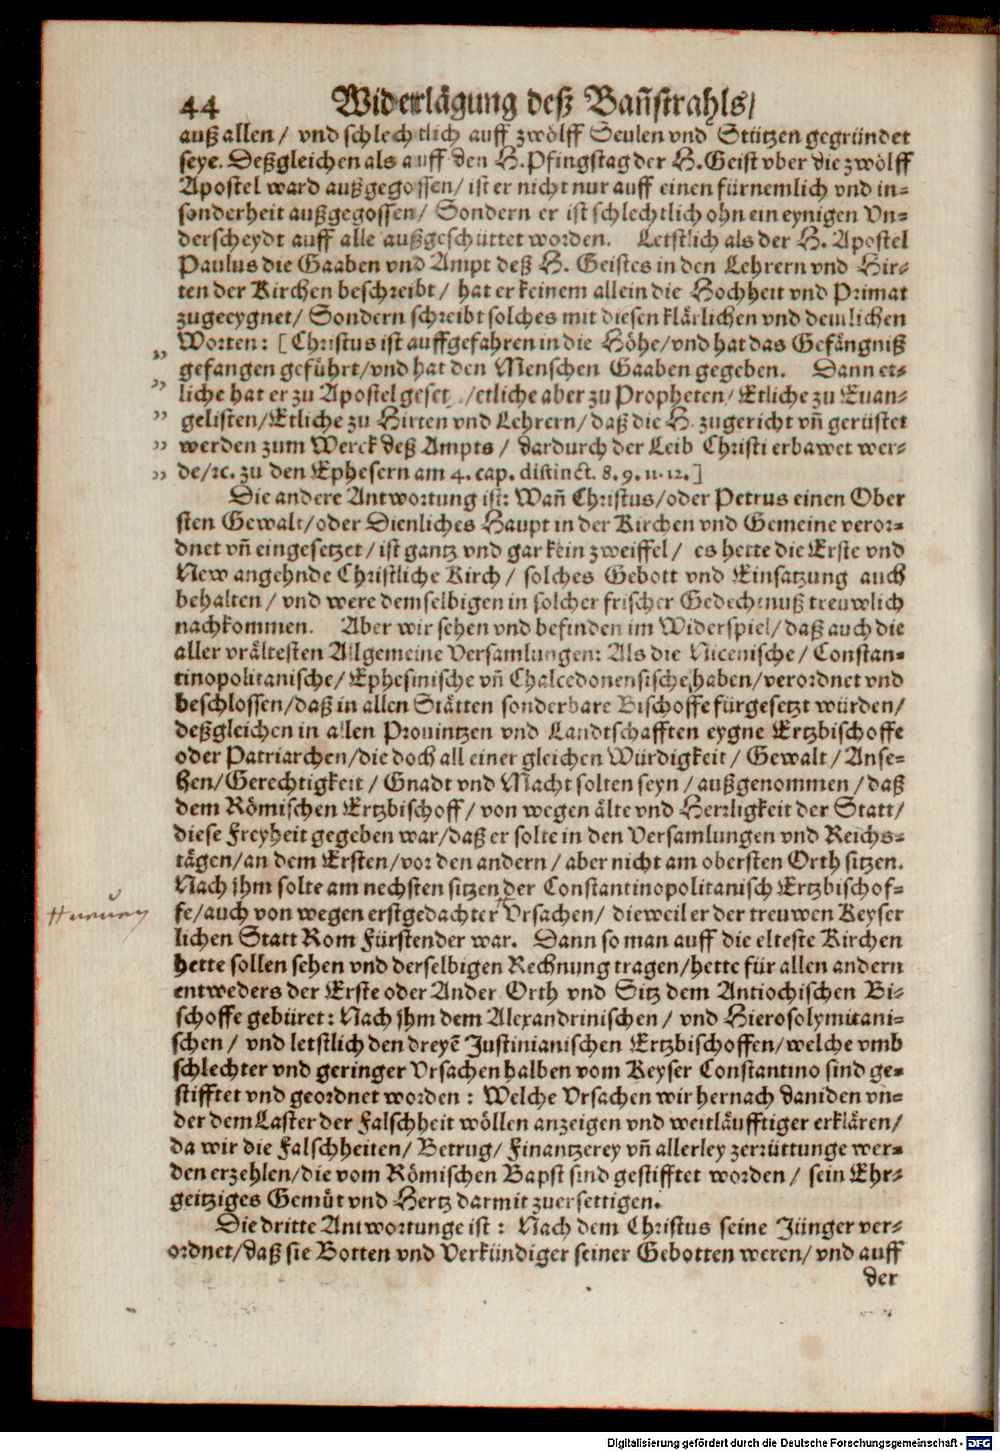 44 Widerlägung deß Bañstrahls/
auß allen / vnd schlechtlich auff zwölff Seulen vnd Stützen gegründet
seye. Deßgleichen als auff den H. Pfingstag der H. Geist vber die zwölff
Apostel ward außgegossen/ ist er nicht nur auff einen fürnemlich vnd in-
sonderheit außgegossen/ Sondern er ist schlechtlich ohn ein eynigen Vn-
derscheydt auff alle außgeschüttet worden. Letstlich als der H. Apostel
Paulus die Gaaben vnd Ampt deß H. Geistes in den Lehrern vnd Hir-
ten der Kirchen beschreibt / hat er keinem allein die Hochheit vnd Primat
zugeeygnet/ Sondern schreibt solches mit diesen klärlichen vnd deutlichen
Worten: [ Christus ist auffgefahren in die Höhe/vnd hat das Gefängniß
gefangen geführt/vnd hat den Menschen Gaaben gegeben. Dann et-
liche hat er zu Apostel geset /etliche aber zu Propheten/ Etliche zu Euan-
gelisten/Etliche zu Hirten vnd Lehrern/ daß die H. zugericht vñ gerüstet
werden zum Werck deß Ampts / dardurch der Leib Christi erbawet wer-
de/ꝛc. zu den Ephesern am 4. cap. distinct. 8. 9. 11. 12. ]
Die andere Antwortung ist: Wañ Christus/oder Petrus einen Ober
sten Gewalt/oder Dienliches Haupt in der Kirchen vnd Gemeine veror-
dnet vñ eingesetzet / ist gantz vnd gar kein zweiffel / es hette die Erste vnd
New angehnde Christliche Kirch / solches Gebott vnd Einsatzung auch
behalten / vnd were demselbigen in solcher frischer Gedechtnuß treuwlich
nachkommen. Aber wir sehen vnd befinden im Widerspiel/ daß auch die
aller vrältesten Allgemeine Versamlungen: Als die Nicenische / Constan-
tinopolitanische/ Ephesinische vñ Chalcedonensische haben/verordnet vnd
beschlossen/daß in allen Stätten sonderbare Bischoffe fürgesetzt würden/
deßgleichen in allen Prouintzen vnd Landtschafften eygne Ertzbischoffe
oder Patriarchen/die doch all einer gleichen Würdigkeit / Gewalt / Anse-
hen/Gerechtigkeit / Gnadt vnd Macht solten seyn / außgenommen / daß
dem Römischen Ertzbischoff / von wegen älte vnd Herrligkeit der Statt/
diese Freyheit gegeben war/daß er solte in den Versamlungen vnd Reichs-
tägen/an dem Ersten/vor den andern / aber nicht am obersten Orth sitzen.
Nach jhm solte am nechsten sitzen der Constantinopolitanisch Ertzbischof-
fe/auch von wegen erstgedachter Vrsachen/ dieweil er der treuwen Keyser
# neuen
lichen Statt Rom Fürstender war. Dann so man auff die elteste Kirchen
hette sollen sehen vnd derselbigen Rechnung tragen/hette für allen andern
entweders der Erste oder Ander Orth vnd Sitz dem Antiochischen Bi-
schoffe gebüret: Nach jhm dem Alexandrinischen / vnd Hierosolymitani-
schen / vnd letstlich den dreyẽ Justinianischen Ertzbischoffen/welche vmb
schlechter vnd geringer Vrsachen halben vom Keyser Constantino sind ge-
stifftet vnd geordnet worden : Welche Vrsachen wir hernach daniden vn-
der dem Laster der Falschheit wöllen anzeigen vnd weitläufftiger erklären/
da wir die Falschheiten/ Betrug/ Finantzerey vñ allerley zerrüttunge wer-
den erzehlen/die vom Römischen Bapst sind gestifftet worden / sein Ehr-
geitziges Gemüt vnd Hertz darmit zuersettigen.
Die dritte Antwortunge ist : Nach dem Christus seine Jünger ver-
ordnet/daß sie Botten vnd Verkündiger seiner Gebotten weren/ vnd auff
der
Digitalisierung gefördert durch die Deutsche Forschungsgemeinschaft - DFG